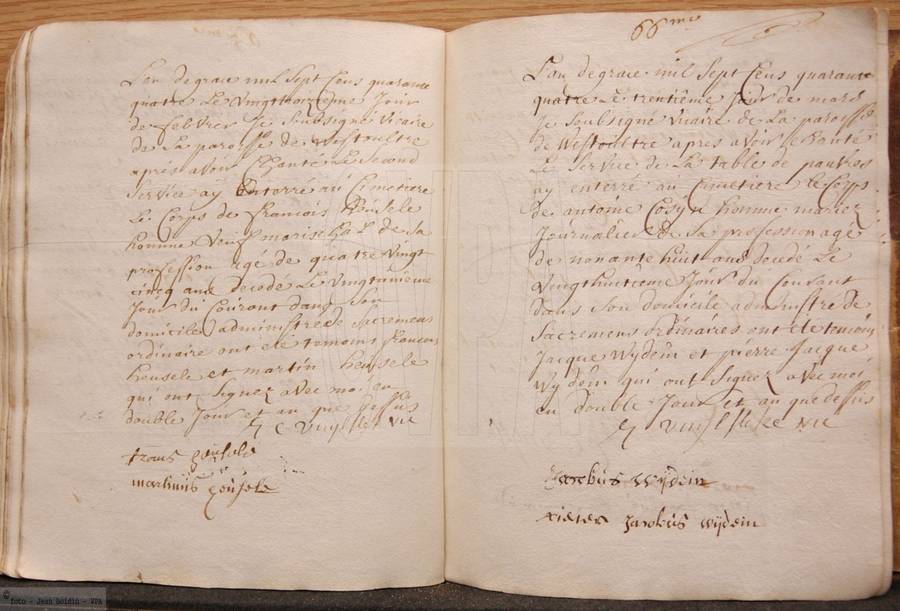 L'an de grace mil Sept Cens quarante
quatre Le Vingtroizieme Jour
de febvrier Je Soubsigné vicaire
de La paroisse de Westoultre
apres avoir Chanté Le Second
Service ay Enterré au Cimetiere
Le Corps de francois Heusele
homme Veuf marischal de Sa
profession agé de quatre Vingt
cincq ans decedé Le Vingtunieme
Jour du Courant dans Son
domicile administré de Sacremens
ordinaire ont eté temoins francois
heusele et martin heusele
qui ont Signez avec moi en
double Jour et an que dessus
frans heusele
martinus heusele
66me
L'an de grace mil Sept Cens quarante
quatre Le trentiême Jour de mars
Je Soubsigné vicaire de La paroisse
de Westoultre apres avoir Chanté
Le Service de La table de pauvres
ay enterré au Cimetiere Le Corps
de antoine Cosyn homme mariez
Journalier de Sa profession agé
de nonante huit ans decedé Le
Vingthuitieme Jour du Courant
dans Son domicile administré de
Sacremens ordinaires ont été temoins
Jacque Wydein et pierre Jacque
Wydein qui ont Signez avec moi
en double Jour et an que dessus
Jacobus Wijdein
pieter Jacobus wijdein
© foto - Jean Boidin - VPA